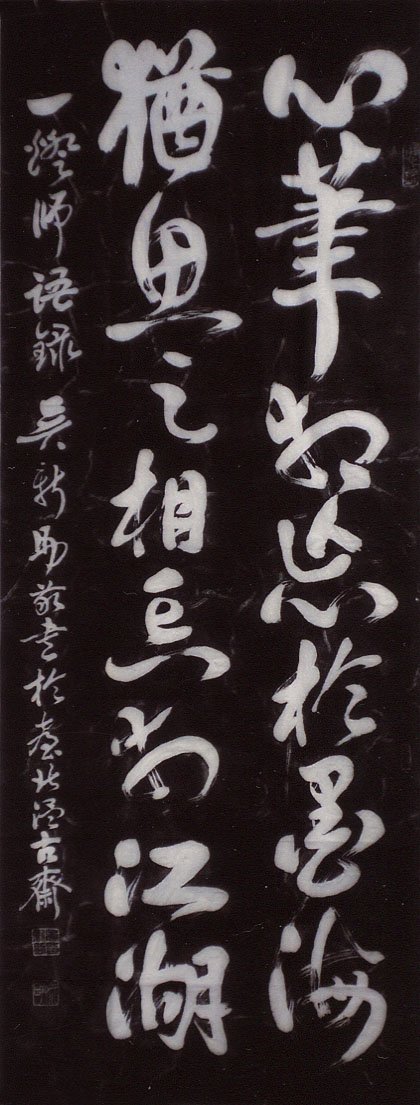 心筆相忘於墨海
猶魚之相忘於江湖
一燈師語錄 吳新助敬書於臺北溫古齋